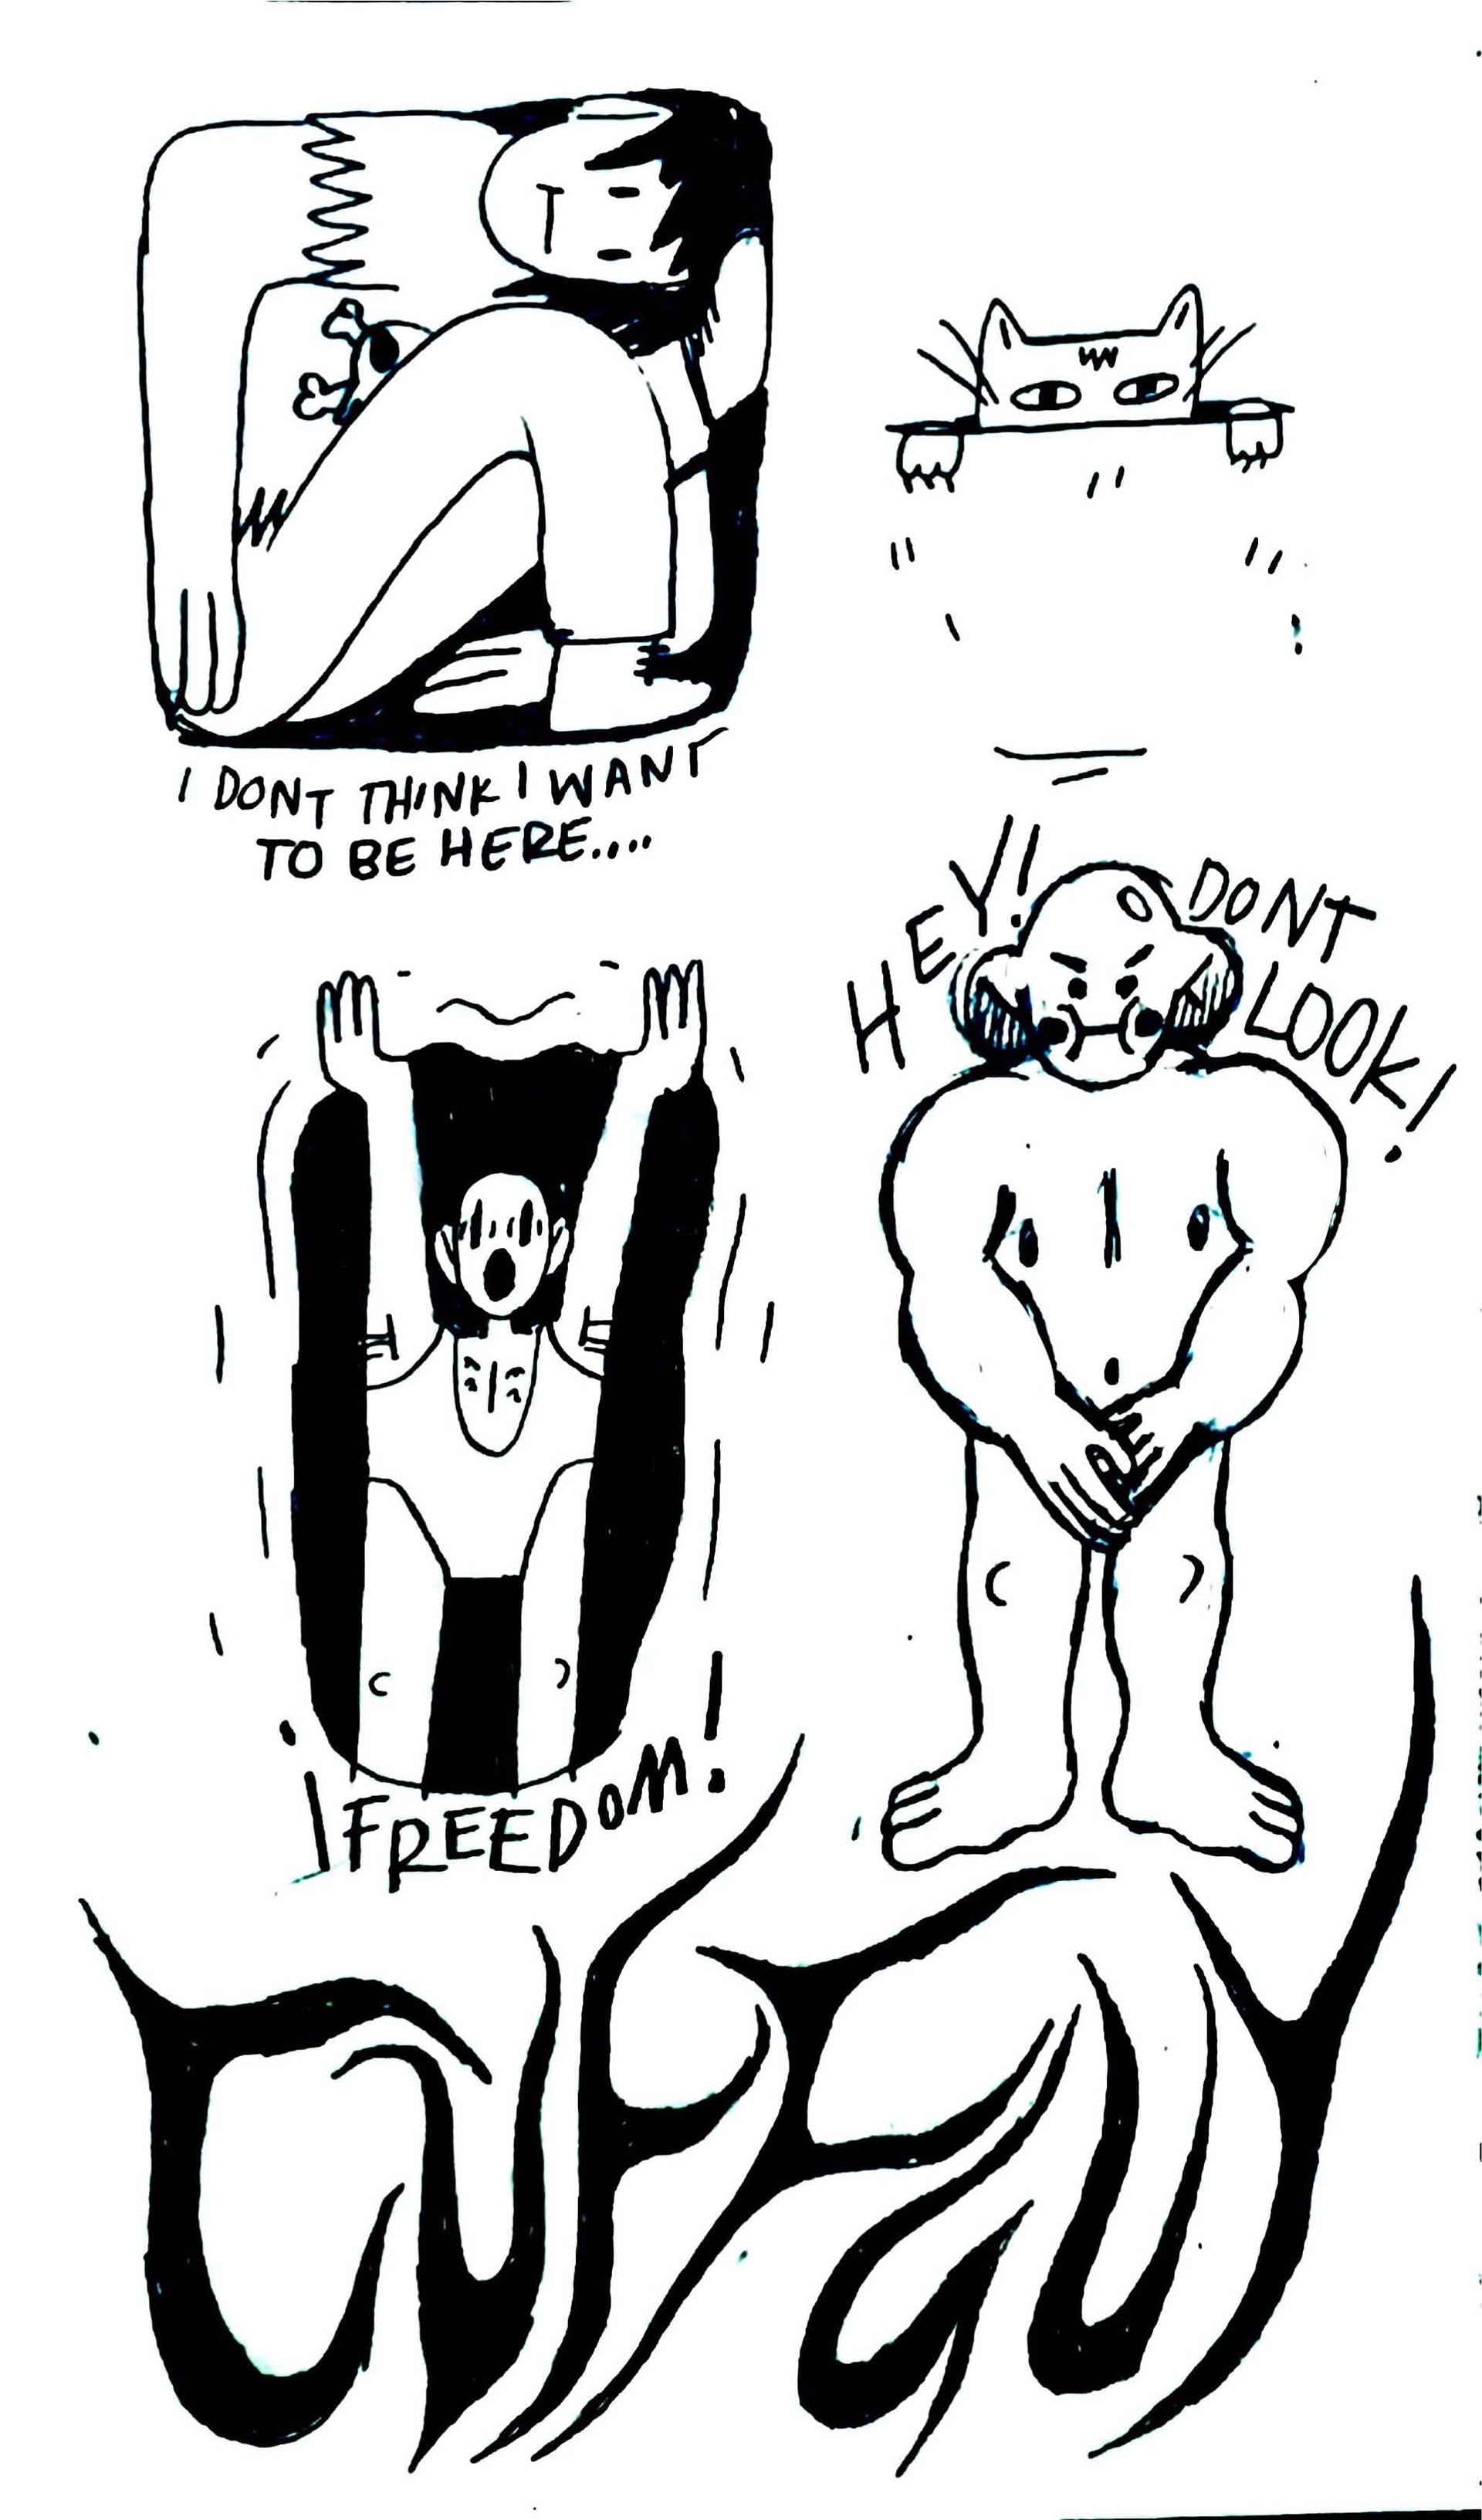 I DONT THINK I WANT
TO BE HERE....
HEY! DONT
LOOK!
¡FREEDOM!